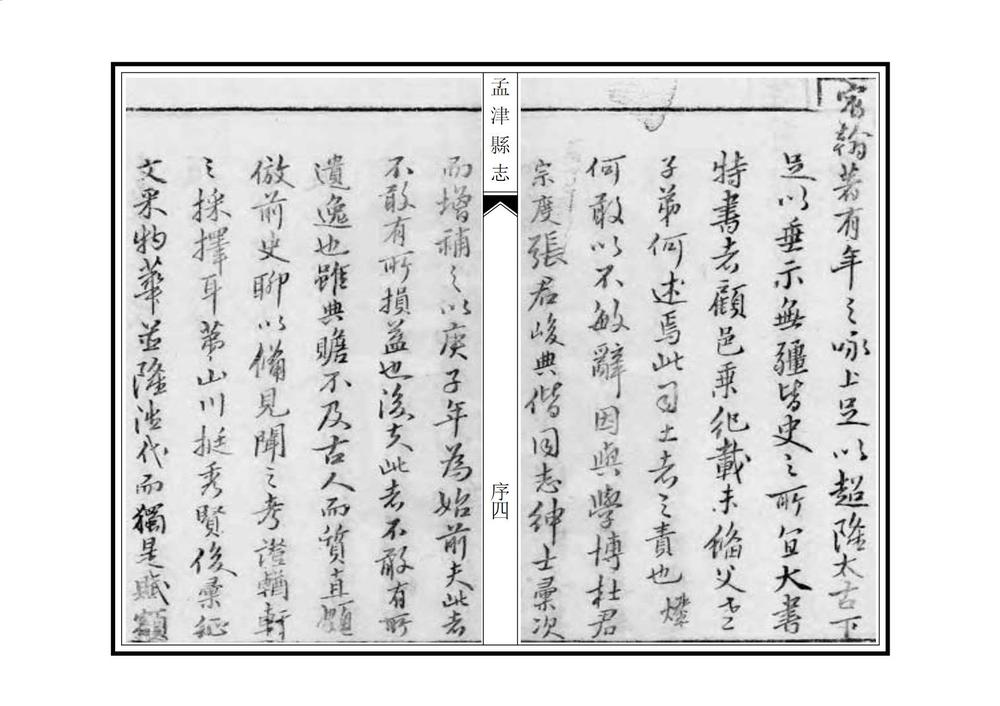 宸翰著有年之咏上足以超隆太古下
足以垂示無疆皆史之所宜大書
特書者顧邑乘紀載未徧父老
子弟何述焉此司土者之責也燦
何敢以不敏辭因與學博杜君
宗度張君峻典偕同志紳士彙次
孟津縣志
序四
而增補之以庚子年為始前夫此者
不敢有所損益也後夫此者不敢有所
遺逸也雖典贍不及古人而質直頗
倣前史聊以備見聞之考證輶軒
之採擇耳第山川挺秀賢俊彙征
文采物華並隆當代而獨是賦額